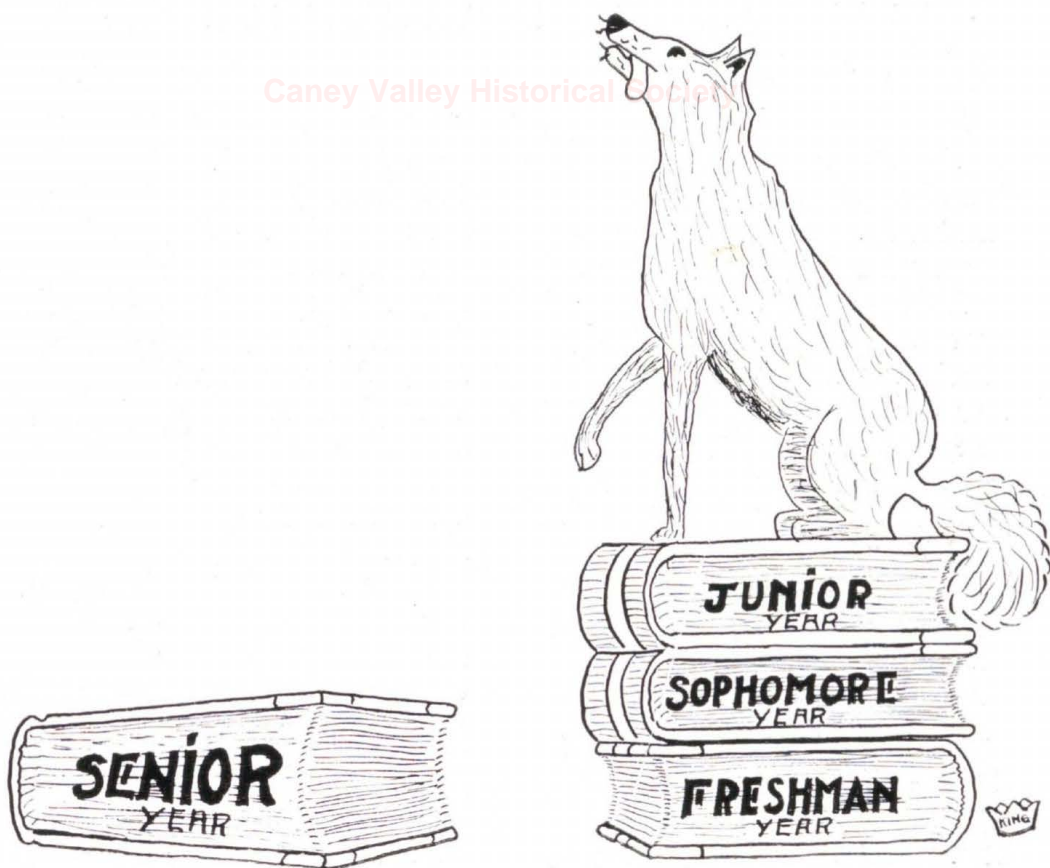 Caney Valley Historical Society
JUNIOR
YEAR
SOPHOMORE
YEAR
SENIOR
YEAR
FRESHMAN
YEAR
KING